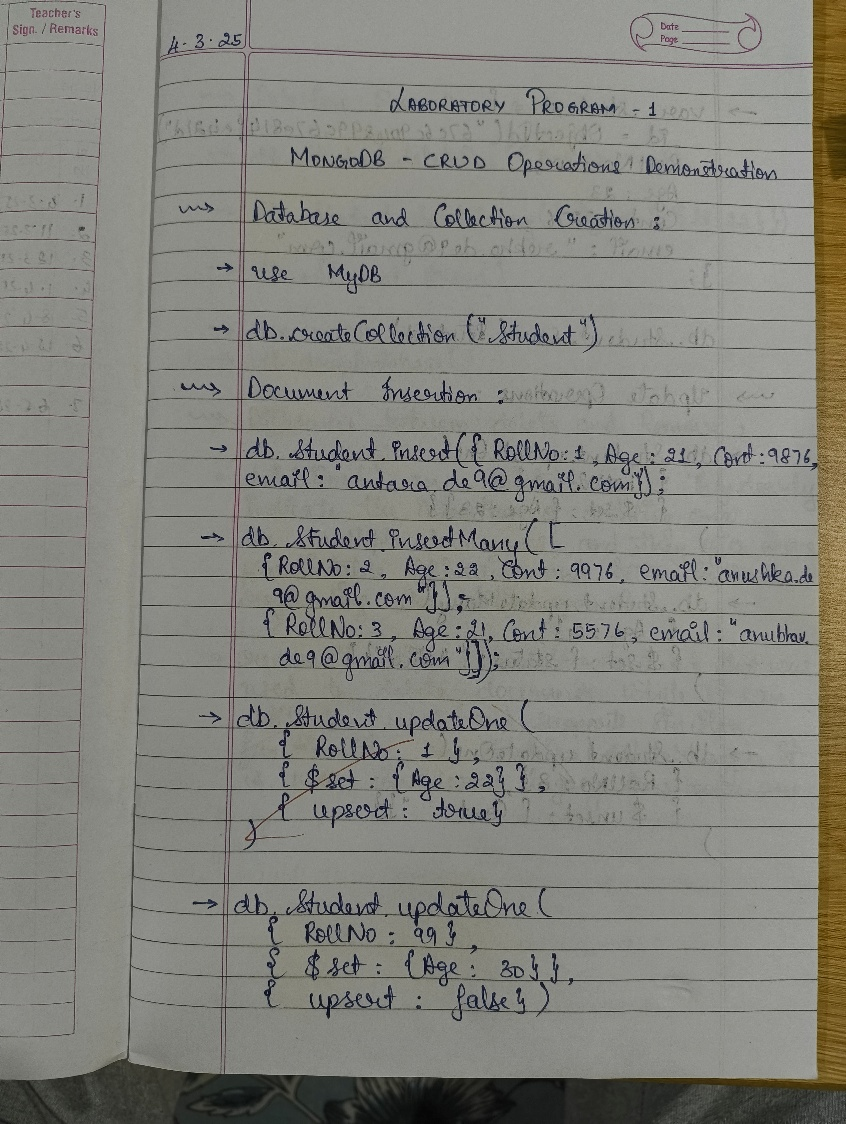 Teacher's
Sign. / Remarks
4.3.25
Date
Page
LABORATORY PROGRAM - 1
MONGODB - CRUD Operations Demonstration
Database and Collection Creation :
→ use MyDB
→ db.createCollection ("Student")
Document Insertion :
→ db. Student. insert({ RollNo: 1, Age : 21, Cont : 9876,
email : "antara.de9@gmail.com"});
→ db. Student. insertMany ( [
{ RollNo: 2, Age : 22, Cont : 9976, email : "anushka.de
9@gmail.com"}];
{ RollNo: 3, Age : 21, Cont : 5576, email : "anubhav.
de9@gmail.com"}]);
→ db. Student. updateOne (
{ RollNo: 1 },
{ $set : {Age : 22} },
{ upsert : true}
)
→ db. Student. updateOne (
{ RollNo : 99 },
{ $set : {Age : 30} },
{ upsert : false} )